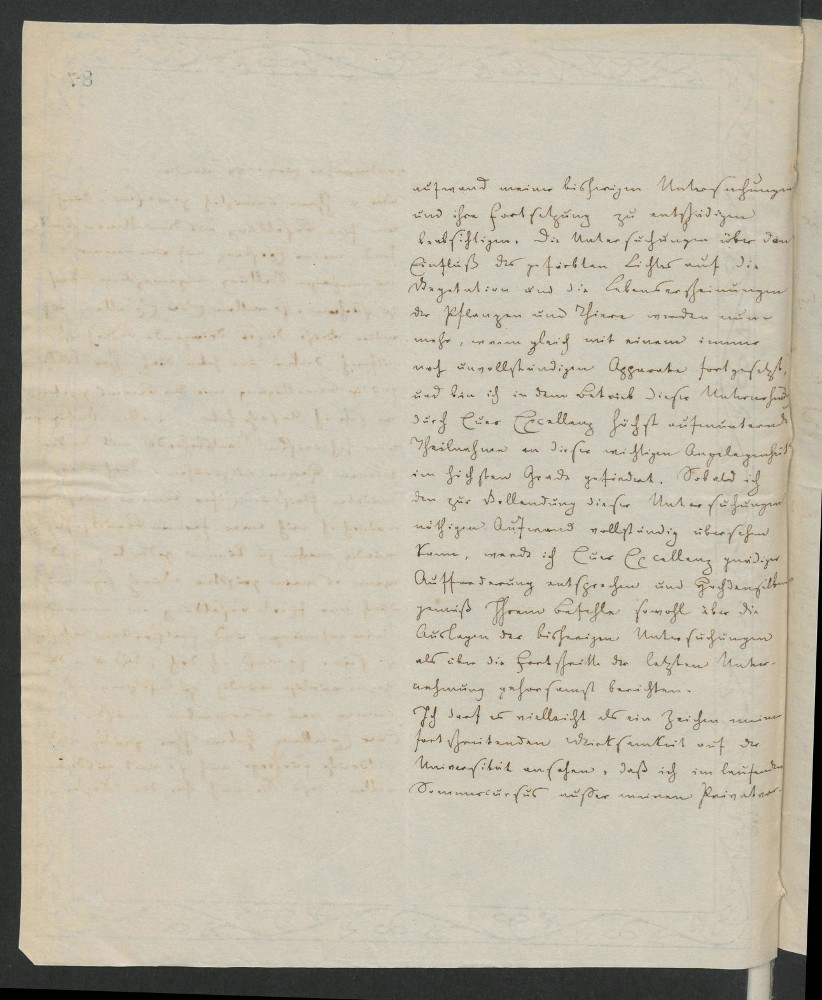 aufwand meiner bisherigen Untersuchungen
und ihre Fortsetzung zu entschädigen
beabsichtigen. Die Untersuchungen über den
Einfluß des gefärbten Lichtes auf die
Vegetation und die Lebenserscheinungen
der Pflanzen und Thiere werden nun-
mehr, wenn gleich mit einem immer
noch unvollständigen Apparate fortgesetzt,
und bin ich in dem Betrieb dieser
durch Euer Excellenz höchst aufmunternde
Theilnahme an dieser wichtigen Angelegenheit
im höchsten Grade gefördert. Sobald ich
den zur Vollendung dieser Untersuchungen
nöthigen Aufwand vollständig übersehen
kann, werde ich Euer Excellenz gnädiger
Aufforderung entsprechen und Hochdenselben
gemäß Ihrem Befehle sowohl über die
Auslagen der bisherigen Untersuchungen
als über die Fortschritte der letzten Unter-
nehmung gehorsamst berichten.
Ich darf es vielleicht als ein Zeichen meiner
fortschreitenden Wirksamkeit auf der
Universität ansehen, daß ich im laufenden
Sommercursus außer meinen Privatvor-